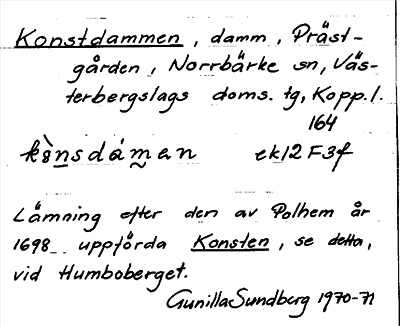 Konstdammen, damm, Präst-
gården, Norrbärke sn, Väs-
terbergslags doms. tg, Kopp. l.
164
kò̀nsdámen ek 12 F3f
Lämning efter den av Polhem år
1698 uppförda Konsten, se detta,
vid Humboberget.
Gunilla Sundberg 1970-71